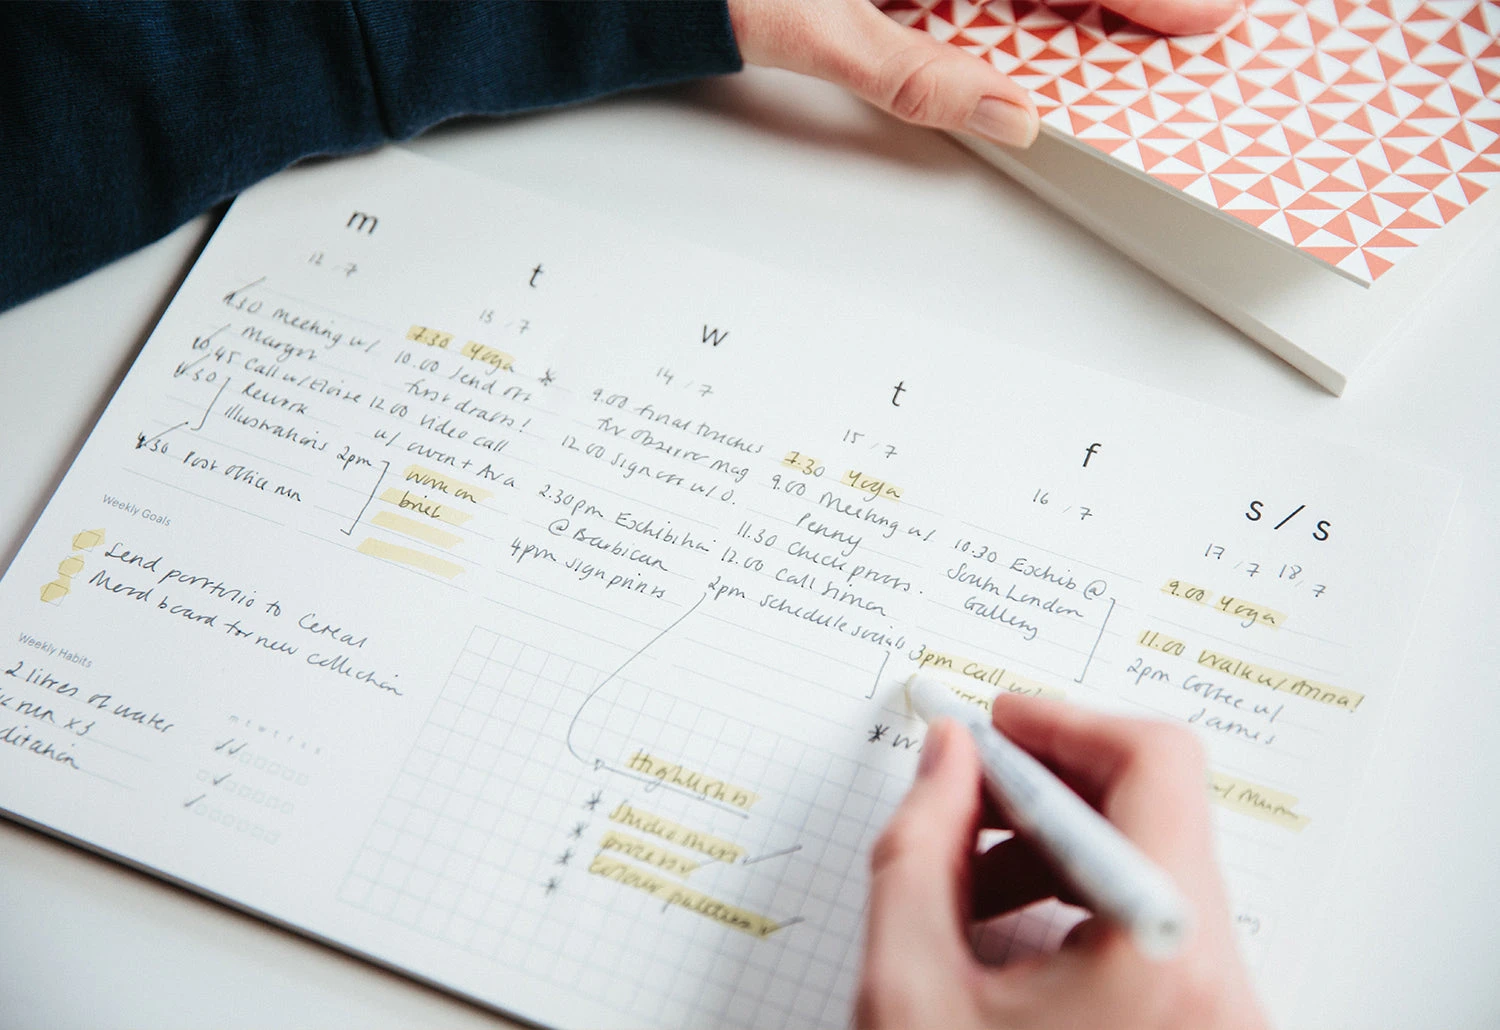 m
12 / 7
9.30 Meeting w/
Margot
10.45 Call w/ Eloise
11.30 Rework
Illustrations
4.30 Post office run
t
13 / 7
7.30 Yoga
10.00 Send off *
first drafts!
12.00 video call
w/ Owen + Ava
2pm work on
brief
w
14 / 7
9.00 final touches
for observer mag
12.00 sign off w/ O.
2.30pm Exhibition
@ Barbican
4pm sign prints
t
15 / 7
7.30 Yoga
9.00 Meeting w/
Penny
11.30 Check proofs.
12.00 Call Simon
2pm schedule socials
f
16 / 7
10.30 Exhib @
South London
Gallery
3pm Call w/
* w
s / s
17 / 7 18 / 7
9.00 Yoga
11.00 Walk w/ Anna!
2pm Coffee w/
James
w/ Mum
Weekly Goals
Send portfolio to Cereal
Mood board for new collection
Weekly Habits
2 litres of water
run x3
ditation
m t w t f s s
Highlights
* 
* 
* colour palettes
*